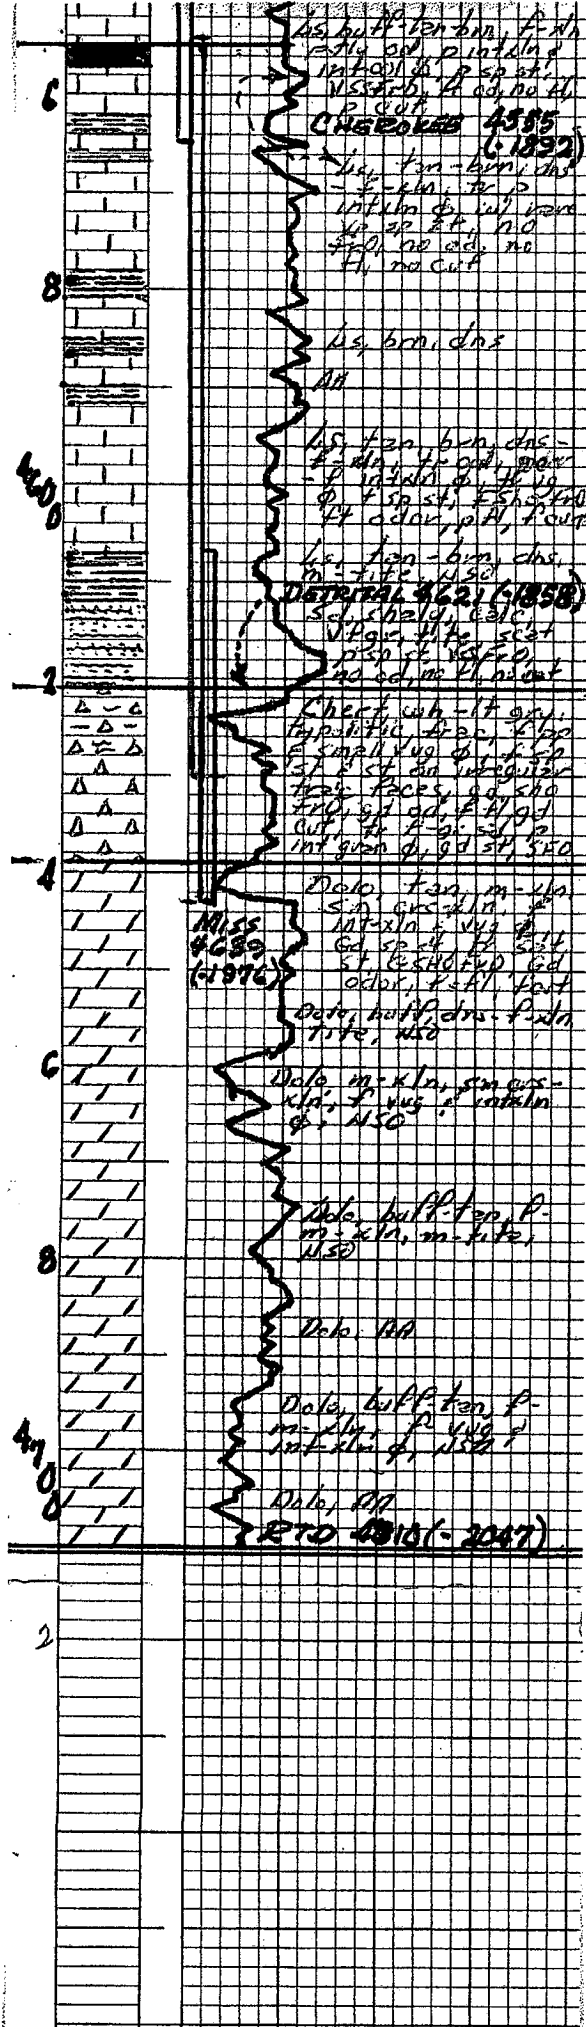 Ls, buff-tan-brn, f-xln
ptly ool, p intxln &
intool ϕ, p sp st,
NSSFrO, ft od, no fl,
p cut
6
CHEROKEE 4555
(-1892)
Ls, tan-brn, dns
-f-xln, tr p
intxln ϕ, w/ rare
sp st, no
FrO, no od, no
fl, no cut
8
Ls, brn, dns
AA
Ls, tan, brn, dns-
f-xln, tr ool,
-p intxln ϕ, tr vug
ϕ, f sp st, FShoFrO
ft odor, p fl, f cut
4600
Ls, tan-brn, dns,
m-tite, NSO
DETRITAL 4621 (-1958)
Sd, shaly, calc,
vfgr, tite, scat
p sp st, NSFrO,
no od, no fl, no cut
2
Chert, wh-lt gry,
tripolitic, frac, f pp
& small vug ϕ, f sp
st & st on irregular
frac faces, gd sho
FrO, gd od, f fl, gd
cut, tr f-gr sd, p
int gran ϕ, gd st, SFO
4
Dolo, tan, m-xln,
sm crs-xln, f
int-xln & vug ϕ
Gd sp st, tr sat
st, GSHOFrO, Gd
odor, f fl, fast
MISS
4639
(-1976)
Dolo, buff, dns-f-xln
tite, NSO
6
Dolo m-xln, sm crs-
xln, f vug & intxln
ϕ, NSO
Dolo, buff-tan, f-
m-xln, m-tite,
NSO
8
Dolo, AA
Dolo, buff-tan, f-
m-xln, f vug &
int-xln ϕ, NSO
4700
Dolo, AA
RTD 4710 (-2047)
2